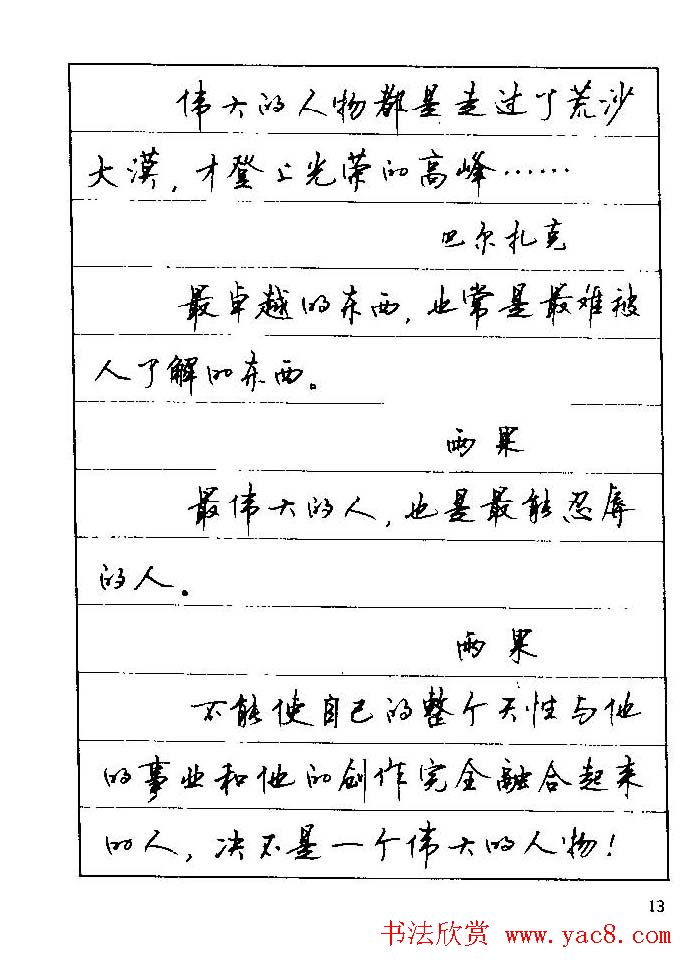 伟大的人物都是走过了荒沙
大漠，才登上光荣的高峰……
巴尔扎克
最卓越的东西，也常是最难被
人了解的东西。
雨果
最伟大的人，也是最能忍辱
的人。
雨果
不能使自己的整个天性与他
的事业和他的创作完全融合起来
的人，决不是一个伟大的人物！
13
书法欣赏 www.yac8.com